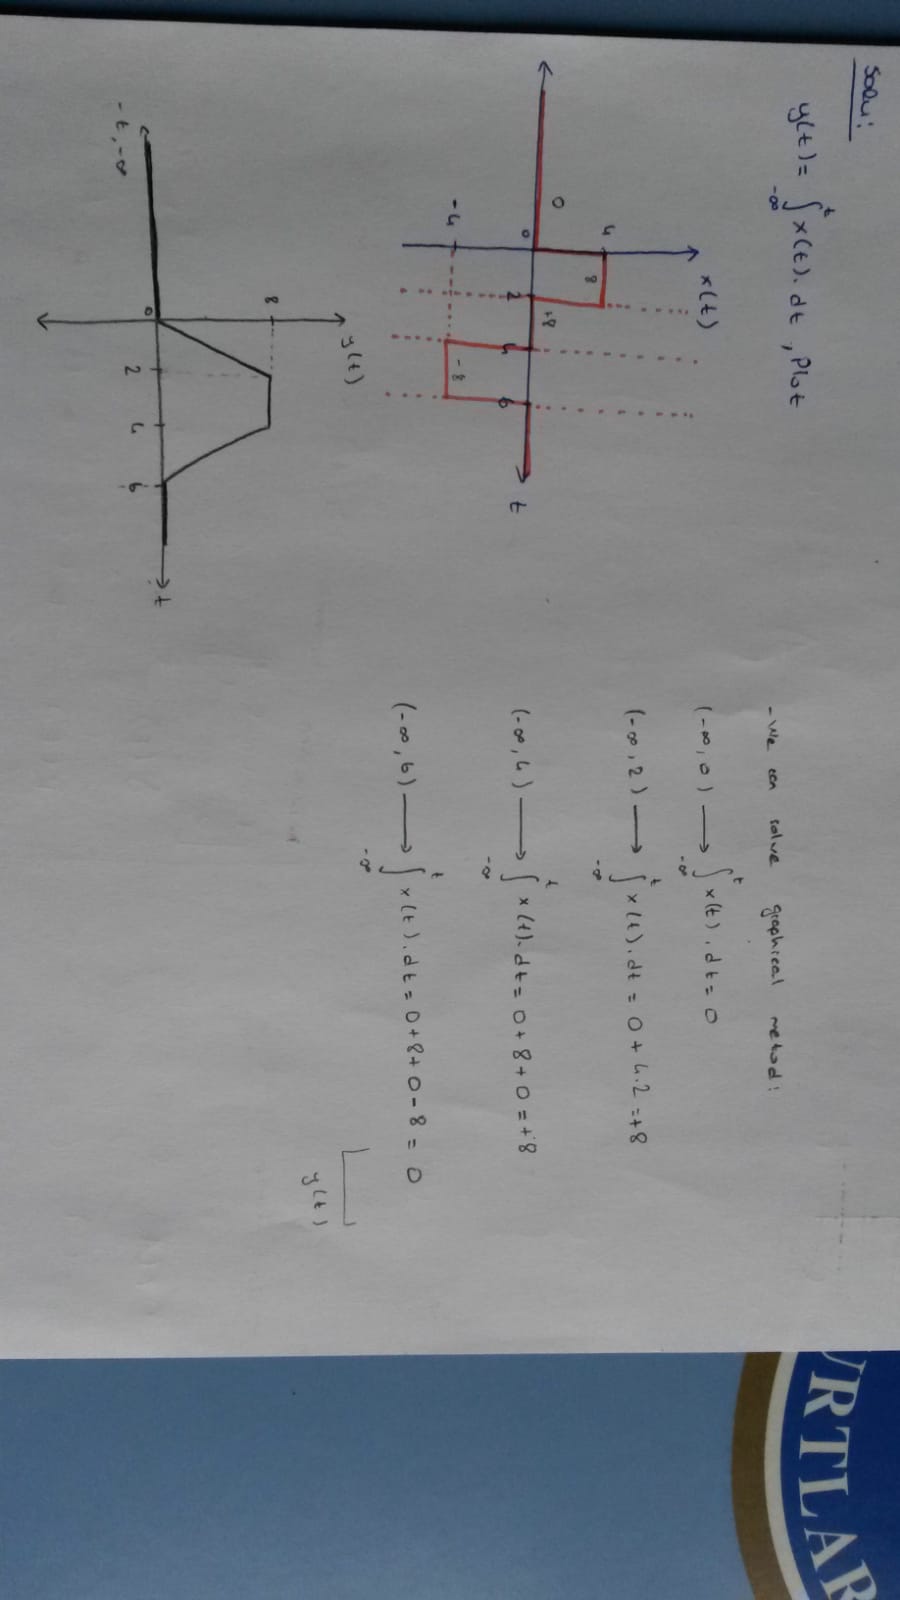 Solu:
y(t) = ∫ x(t). dt , Plot
t
-∞
x(t)
4
8
0
0
2
+8
4
6
t
-4
-8
y(t)
8
0
2
4
6
t
-t, -∞
- We can solve graphical metod:
(-∞, 0) → ∫ x(t). dt = 0
t
-∞
(-∞, 2) → ∫ x(t). dt = 0 + 4.2 = +8
t
-∞
(-∞, 4) → ∫ x(t). dt = 0 + 8 + 0 = +8
t
-∞
(-∞, 6) → ∫ x(t). dt = 0 + 8 + 0 - 8 = 0
t
-∞
y(t)
URTLAR